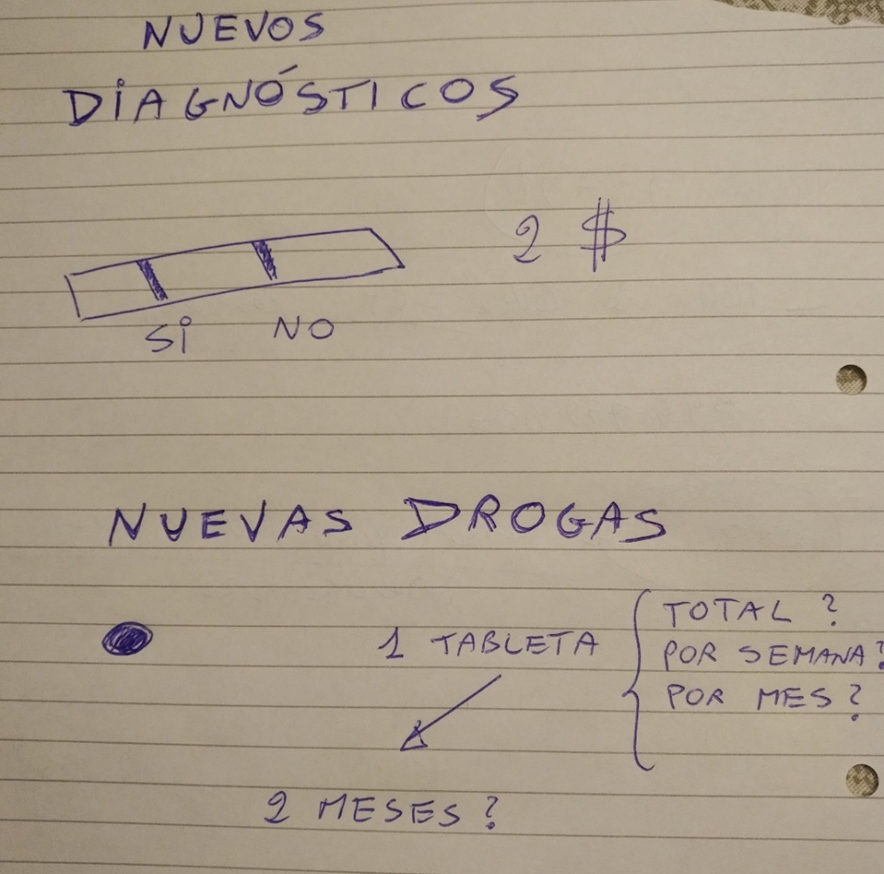 NUEVOS
DIAGNÓSTICOS
2 $
SI NO
NUEVAS DROGAS
1 TABLETA { TOTAL ?
POR SEMANA?
POR MES ?
2 MESES ?